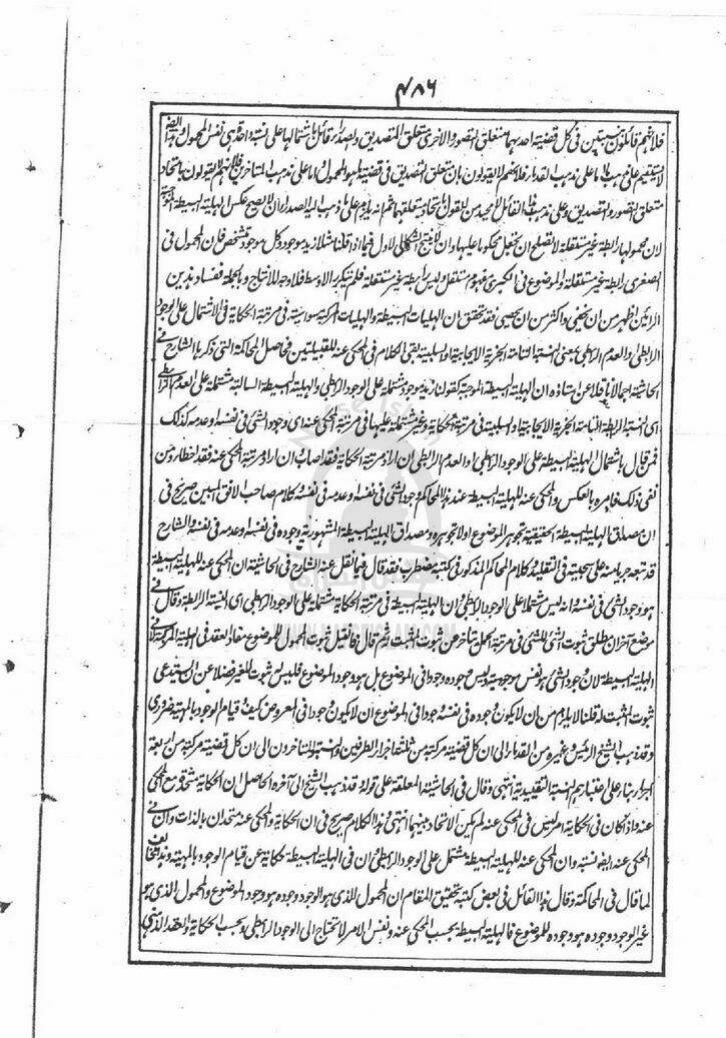 ۴۸۶
فلانهم قائلون بنسبتين فى كل قضية احدىهما متعلق التصور والاخرى متعلق التصديق والصدر قائل باشتمالها على نسبة واحدة هى نفس المحمول
لا يستقيم على مذهب اما على مذهب القدماء فلانهم لا يقولون بان متعلق التصديق فى قضية ما هو المحمول واما على مذهب المتاخرين فلانهم لا يقولون باتحاد
متعلق التصور والتصديق وعلى مذهب هذا القائل لا محيد من القول باتحاد متعلقهما ثم انه يلزم على ما ذهب اليه الصدر ان لا يصح عكس الهلية البسيطة الموجبة
لان محمولها رابطة غير مستقلة لا تصلح ان تجعل محكوما عليها وان لا ينتج الشكل الاول فيما اذا قلنا مثلا زيد موجود وكل موجود متشخص فان المحمول فى
الصغرى رابطة غير مستقلة والموضوع فى الكبرى مفهوم مستقل وليس رابطة غير مستقلة فلم يتكرر الاوسط فلا وجه للانتاج وبالجملة ففساد هذين
الرائين اظهر من ان يخفى واكثر من ان يحصى فقد تحقق ان الهليات البسيطة والهليات المركبة سواسية فى مرتبة الحكاية فى الاشتمال على الوجود
الرابطى والعدم الرابطى بمعنى النسبة التامة الخبرية الايجابية والسلبية بقى الكلام فى المحكى عنه للقبيلتين فحاصل المحاكمة التى ذكرها الشارح فى
الحاشية اجمالا ناقلا عن استاذه ان الهلية البسيطة الموجبة كقولنا زيد موجود مشتملة على الوجود الرابطى والهلية البسيطة السالبة مشتملة على العدم الرابطى
اى النسبة الرابطة التامة الخبرية الايجابية والسلبية فى مرتبة الحكاية وغير مشتملة عليها فى مرتبة المحكى عنه اى وجود الشئ فى نفسه او عدمه كذلك
فمن قال باشتمال الهلية البسيطة على الوجود الرابطى او العدم الرابطى ان اراد مرتبة الحكاية فقد اصاب وان اراد مرتبة المحكى عنه فقد اخطأ ومن
نفى ذلك فامره بالعكس والمحكى عنه للهلية البسيطة عند هذا المحاكم وجود الشئ فى نفسه او عدمه فى نفسه وكلام صاحب الافق المبين صريح فى
ان مصداق الهلية البسيطة الحقيقية تجوهر الموضوع او لا تجوهره ومصداق الهلية البسيطة المشهورية وجوده فى نفسه او عدمه فى نفسه والشارح
قد تبعه جريا منه على سجيته فى التقليد وكلام المحاكم المذكور فى كتبه مضطرب فقد قال فيما نقل عنه الشارح فى الحاشية ان المحكى عنه للهلية البسيطة
هو وجود الشئ فى نفسه وانه ليس مشتملا على الوجود الرابطى وان الهلية البسيطة فى مرتبة الحكاية مشتملة على الوجود الرابطى اى النسبة الرابطة وقال فى
موضع اخر ان مطلق ثبوت الشئ للشئ فى مرتبة الحمل متاخر عن ثبوت المثبت له ثم قال فان قيل ثبوت المحمول للموضوع مفاد العقد فى الهلية المركبة لا فى
الهلية البسيطة لان وجود الشئ هو نفس موجوديته وليس هو وجوده وجودا فى الموضوع بل هو وجود الموضوع فليس ثبوت للغير فضلا عن ان يستدعى
ثبوت المثبت له قلنا لا يلزم من ان لا يكون وجوده فى نفسه وجودا فى الموضوع ان لا يكون وجودا فى العروض كيف وقيام الوجود بالمهية ضرورى
وقد ذهب الشيخ الرئيس وغيره من القدماء الى ان كل قضية مركبة من ثلثة اجزاء الطرفين والنسبة والمتاخرون الى ان كل قضية مركبة من اربعة
اجزاء بناء على اعتبارهم النسبة التقييدية انتهى وقال فى الحاشية المعلقة على قوله وقد ذهب الشيخ الى آخره الحاصل ان الحكاية متحدة مع المحكى
عنه واذا كان فى الحكاية امر ليس فى المحكى عنه لم يكن الاتحاد بينهما انتهى وهذا الكلام صريح فى ان الحكاية والمحكى عنه متحدان بالذات وان فى
المحكى عنه ايضا نسبة وان المحكى عنه للهلية البسيطة مشتمل على الوجود الرابطى وان فى الهلية البسيطة حكاية عن قيام الوجود بالمهية وهذا مخالف
لما قال فى المحاكمة وقال هذا القائل فى بعض كتبه تحقيق المقام ان المحمول الذى هو الوجود وجوده هو وجود الموضوع والمحمول الذى هو
غير الوجود وجوده هو وجوده للموضوع فالهلية البسيطة بحسب المحكى عنه ونفس الامر لا تحتاج الى الوجود الرابطى وبحسب الحكاية والعقد الذهنى